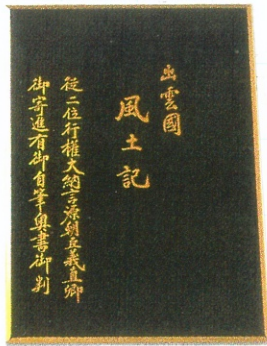 出雲國
風土記
従二位行権大納言源朝臣義直卿
御寄進有御自筆奥書御判